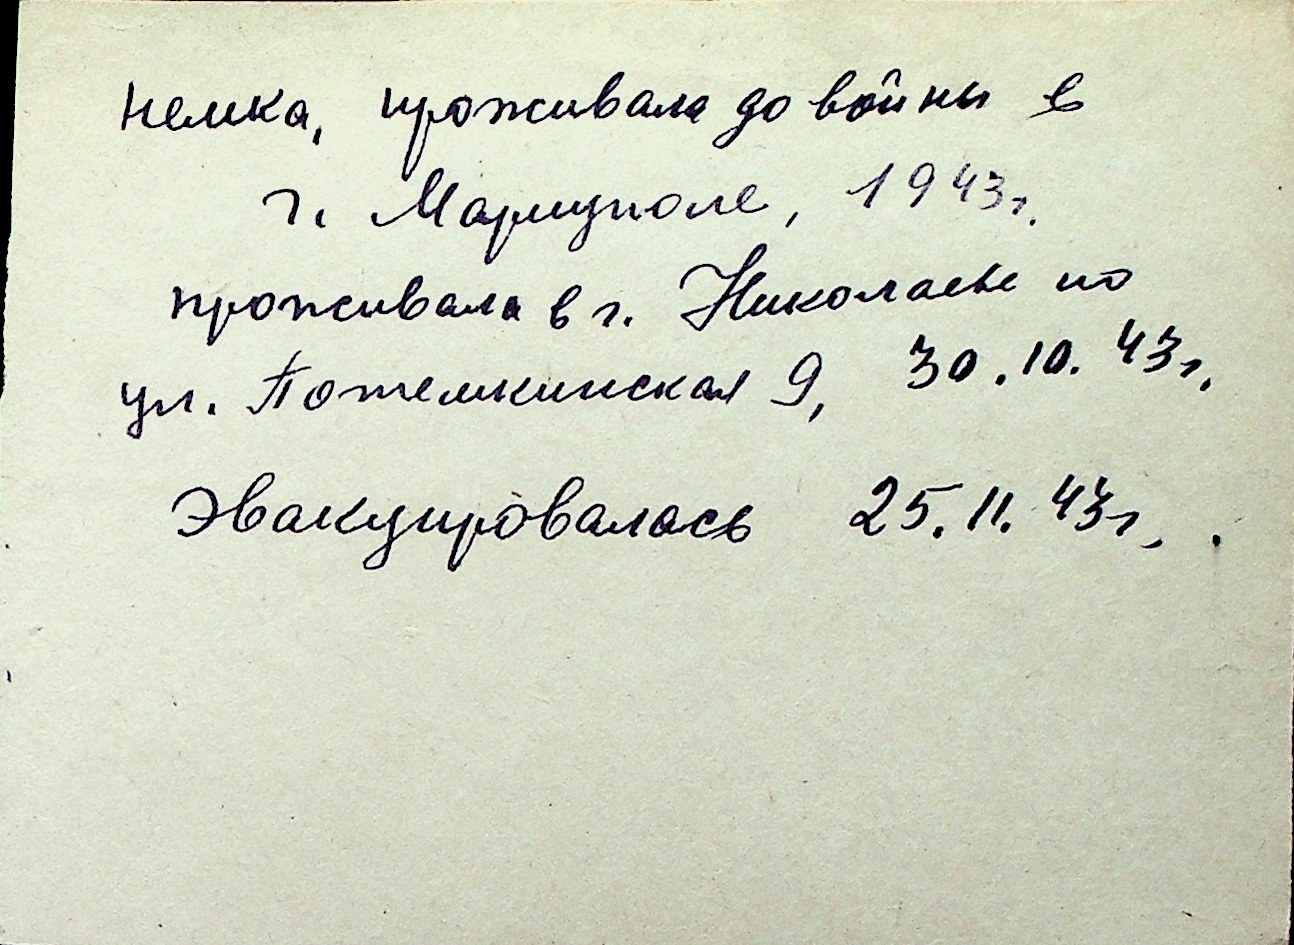 немка, проживала до войны в
г. Мариуполе, 1943г.
проживала в г. Николаеве по
ул. Потемкинская 9, 30.10.43г.
Эвакуировалась 25.11.43г.